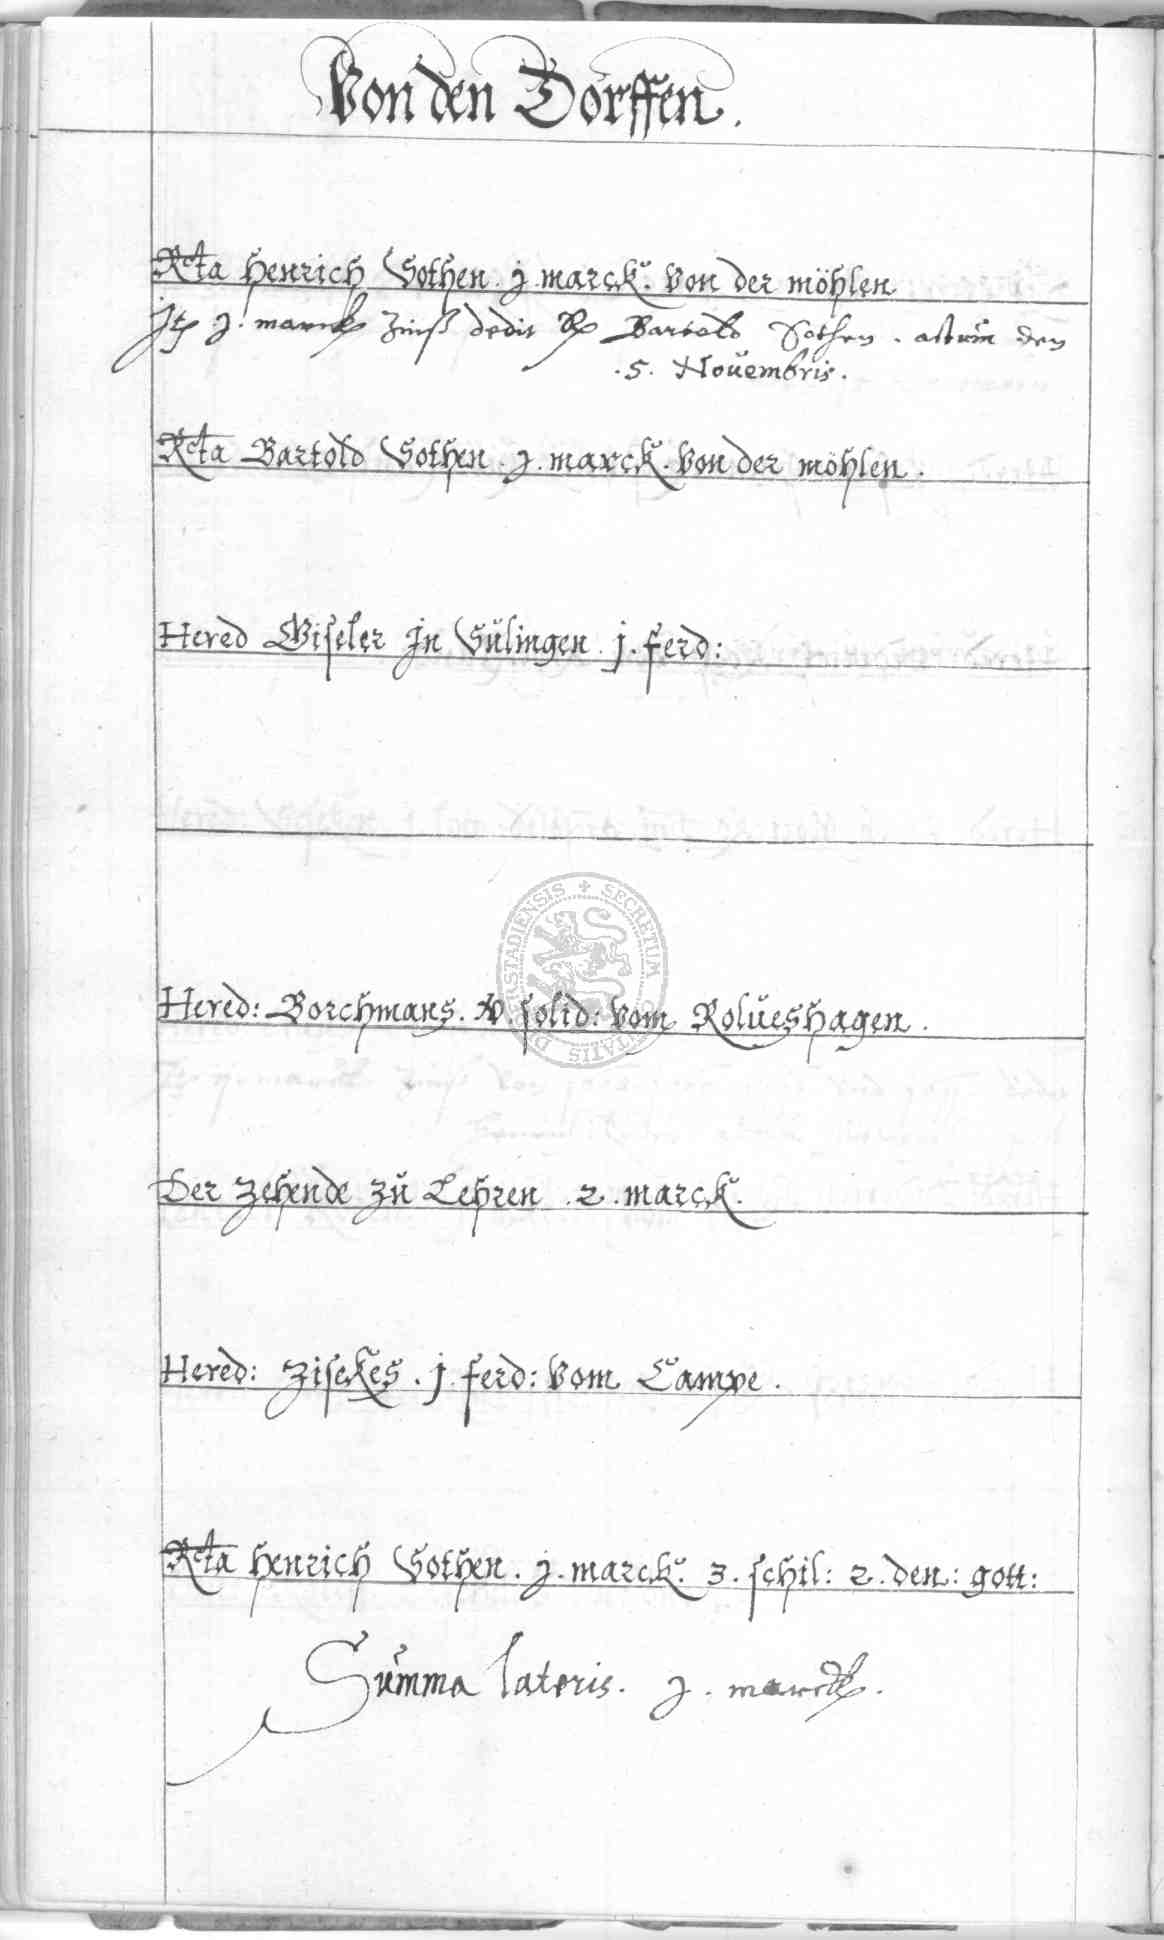 Von den Dörffen.
Rcta Henrich Sothen . j . marck. von der möhlen
Itē j . marck zinß dedit Bartold Sothen . actum den
. 5 . Nouembris .
Rcta Bartold Sothen . j . marck . von der möhlen .
Hered Giseler in Sülingen . j . ferd :
Hered : Borchmans . xv . solid : vom Rolüeshagen .
Der zehende zu Lehren . 2 . marck .
Hered : Zisekes . j . ferd : vom Campe .
Rcta Henrich Sothen . j . marck . 3 . schil : 2 . den : gott :
Summa lateris . j . marck .
SECRETUM CIVITATIS DUDERSTADIENSIS